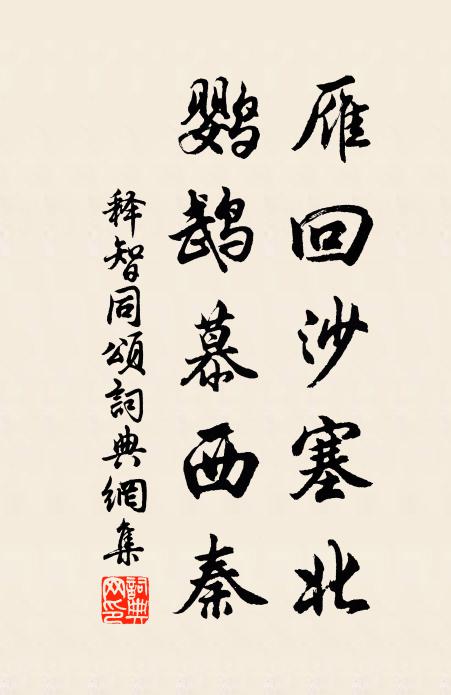 雁回沙塞北
鹦鹉慕西秦
释智同颂詞典網集
詞典网印